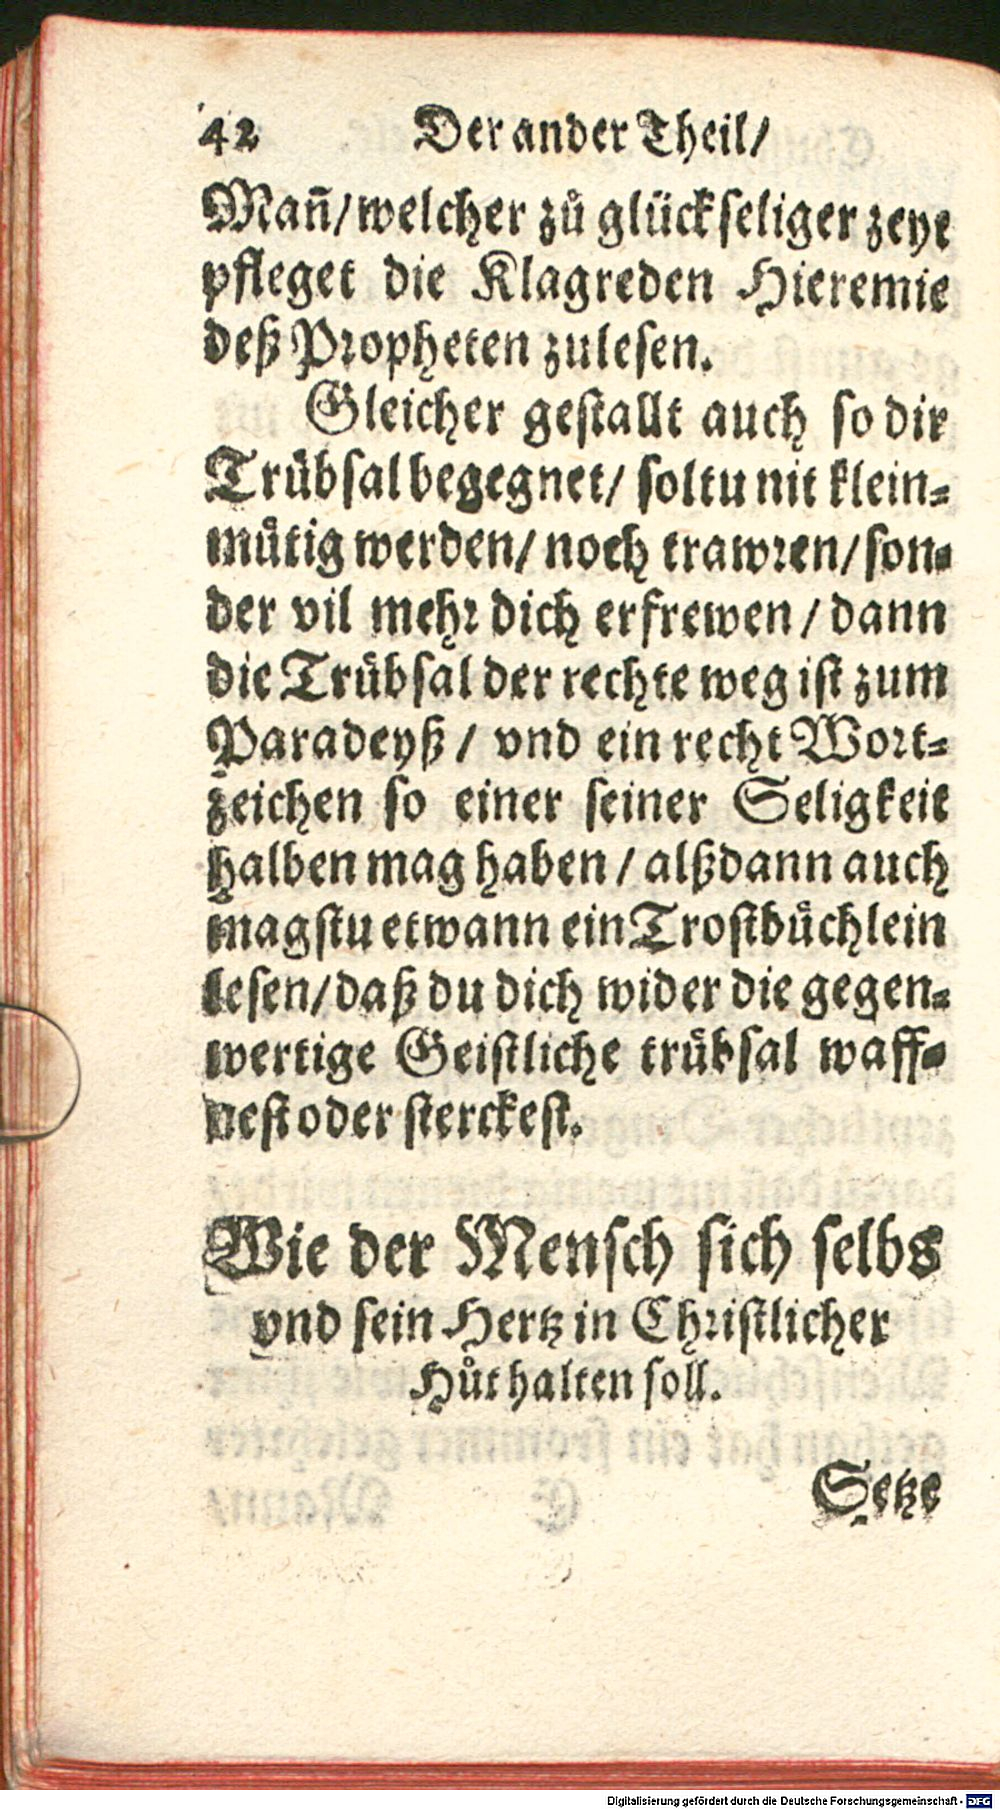 42 Der ander Theil/
Mañ/welcher zů glückseliger zeyt
pfleget die Klagreden Hieremie
deß Propheten zulesen.
Gleicher gestallt auch so dir
Trůbsal begegnet/ soltu nit klein=
můtig werden/ noch trawren/son=
der vil mehr dich erfrewen/ dann
die Trůbsal der rechte weg ist zum
Paradeyß/ vnd ein recht Wort=
zeichen so einer seiner Seligkeit
halben mag haben/ alßdann auch
magstu etwann ein Trostbůchlein
lesen/daß du dich wider die gegen=
wertige Geistliche trůbsal waff=
nest oder sterckest.
Wie der Mensch sich selbs
vnd sein Hertz in Christlicher
Hůt halten soll.
Setze
Digitalisierung gefördert durch die Deutsche Forschungsgemeinschaft - DFG